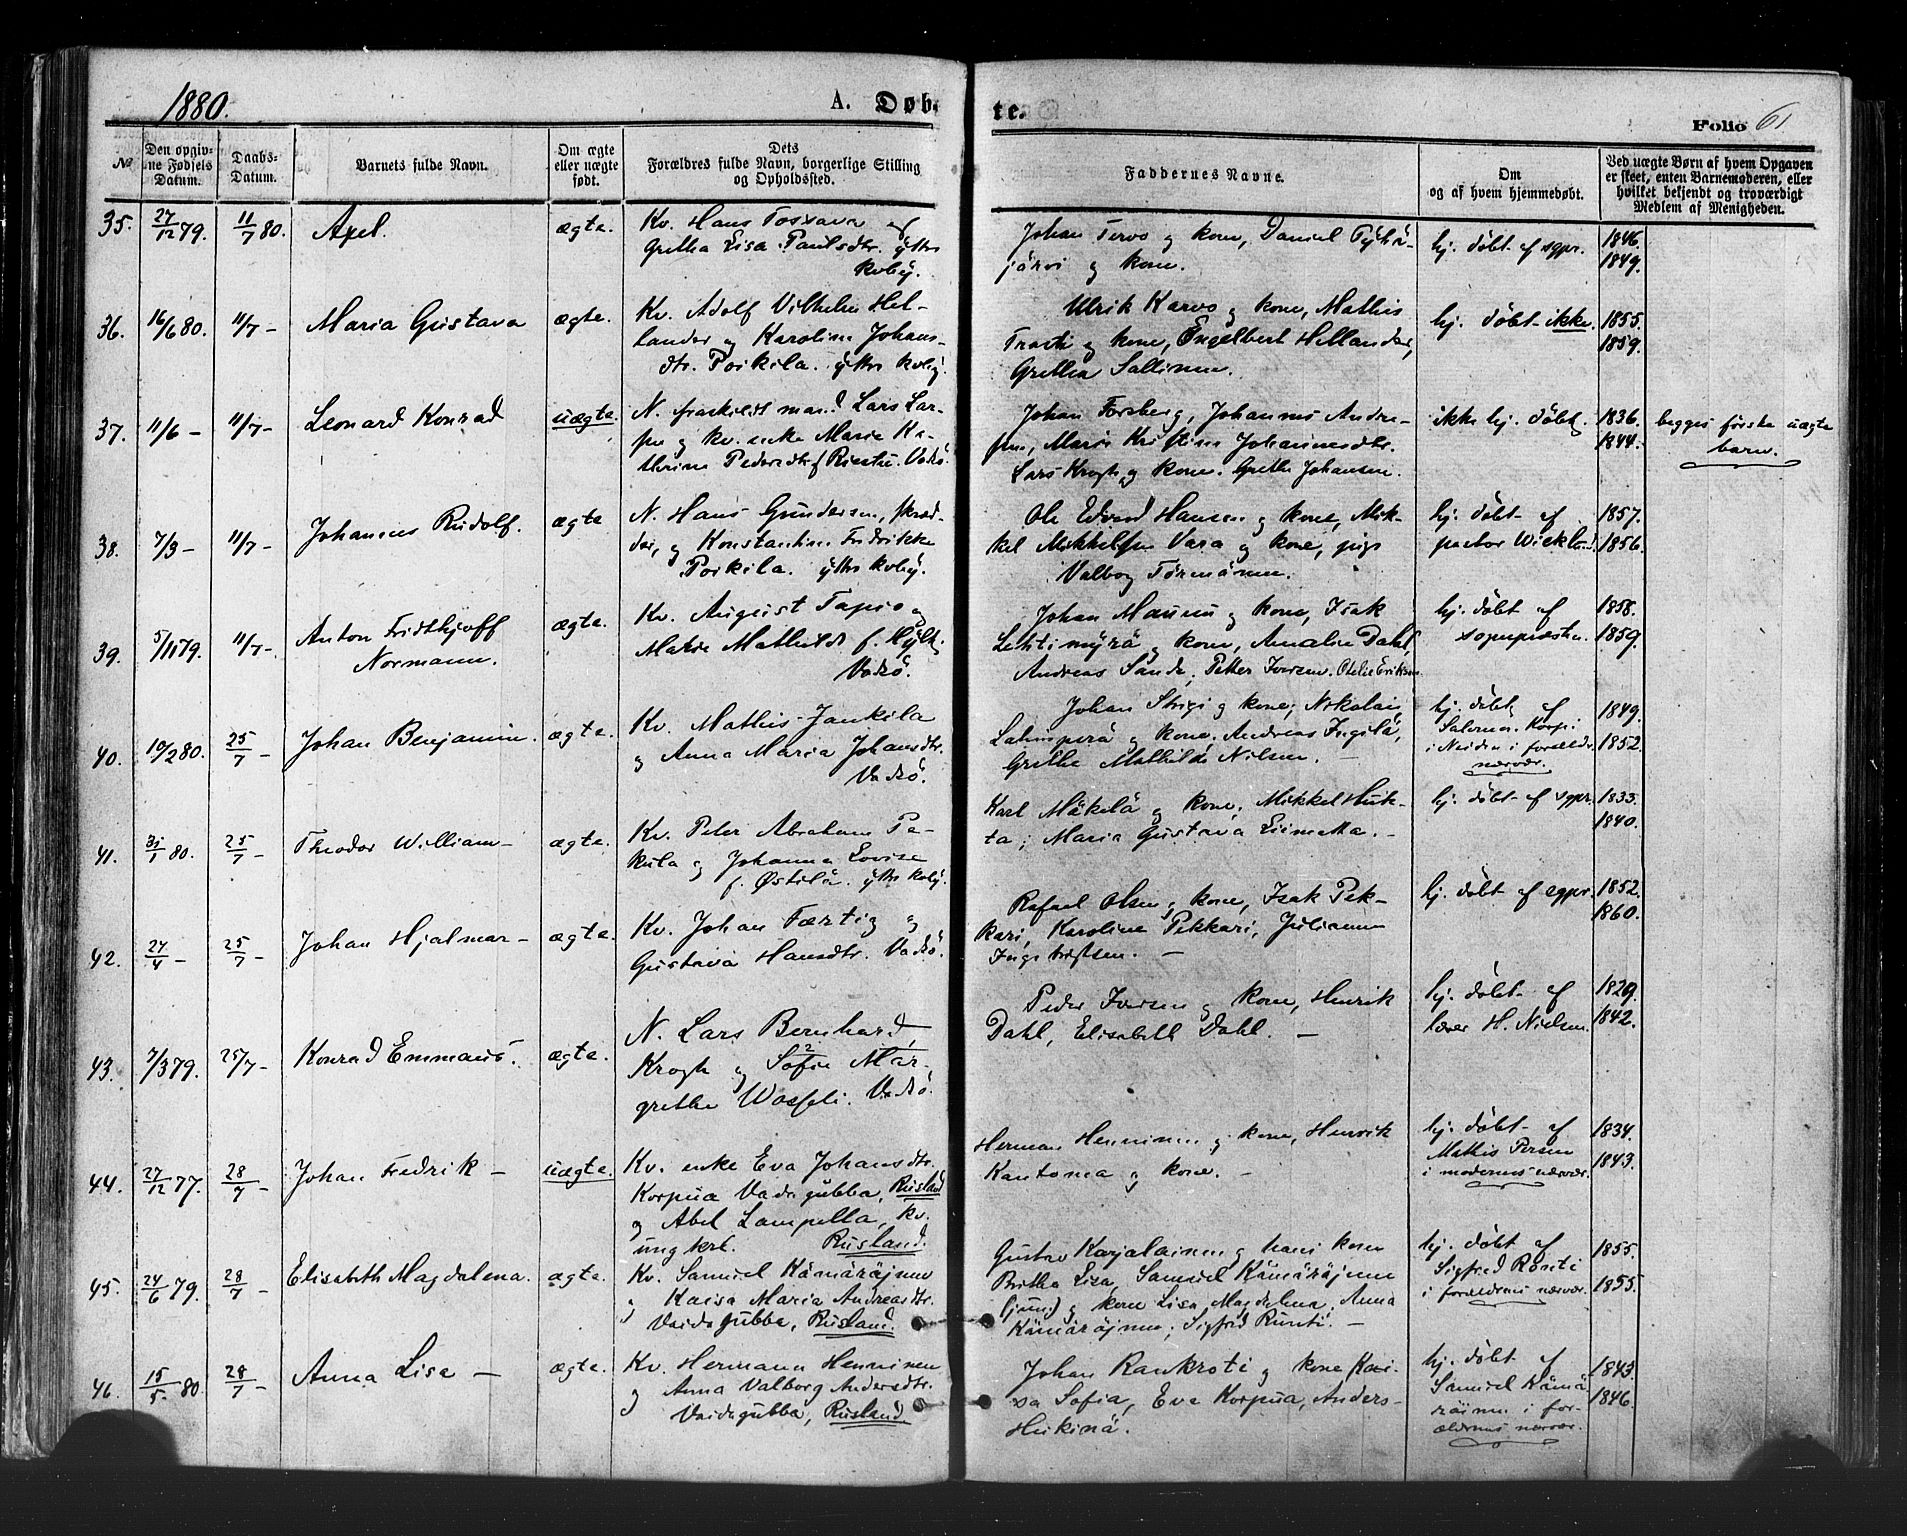 1880.
A. Døb-
te.
Folio 61
№
Den opgiv-
ne Fødsels
Datum.
Daabs-
Datum.
Barnets fulde Navn.
Om ægte
eller uægte
født.
Dets
Forældres fulde Navn, borgerlige Stilling
og Opholdssted.
Faddernes Navne.
Om
og af hvem hjemmedøbt.
Ved uægte Børn af hvem Opgaven
er skeet, enten Barnemoderen, eller
hvilket bekjendt og troværdigt
Medlem af Menigheden.
35. 27/12 79. 11/7 80. Axel. ægte.
Kv. Hans Tossava og
Gretha Lisa Paulsdtr. ytre
kvby.
Johan Tervo og kone, Daniel Pyhä-
järvi og kone.
hj. døbt af sgpr.
1846.
1849.
36. 16/6 80. 11/7 - Maria Gustava ægte.
Kv. Adolf Vilhelm Hel-
lander og Karoline Johans-
dtr. Poikila. ytre kvby.
Ulrik Karvo og kone, Mathis
og kone, Engelbert Hellander,
Gretha Sallinen.
hj. døbt ikke.
1855.
1859.
37. 11/6 - 11/7 - Leonard Konrad uægte.
N. fraskildt mand Lars Lar-
sen og kv. enke Marie Ka-
thrine Pedersdtr f. Vadsö.
Johan Forsberg, Johannes Andre-
sen, Marie Kristine Johannesdtr.
Lars Krogh og kone. Grethe Johansen.
ikke hj. døbt
1836.
1844.
begges første uægte
barn.
38. 7/3 - 11/7 - Johannes Rudolf. ægte
N. Hans Gundersen, skræd-
der, og Konstantine Fredrikke
Poikila. ytre kvby.
Ole Edvard Hansen og kone, Mik-
kel Mikkelsen Vara og kone, pige
Valborg Törmänen.
hj. døbt af
pastor Wicklund.
1857.
1856.
39. 5/11 79. 11/7 - Anton Fridthjoff
Normann. ægte.
Kv. August Tapio og
Marie Mathilde f.
Vadsö.
Johan Maunu og kone, Isak
Lehtimyrä og kone, Amalie Dahl,
Andreas Sande, Petter Iversen. Otelie Eriksen.
hj. døbt af
sognepræsten.
1858.
1859.
40. 10/2 80. 25/7 - Johan Benjamin. ægte.
Kv. Mathis Junkila
og Anna Maria Johansdtr.
Vadsö.
Johan og kone, Nikolai
Lahinperä og kone. Andreas Ingilä,
Grethe Mathilde Nilsen. -
hj. døbt af
Salomon Korpi
i Neiden i forældr.
nærvær.
1849.
1852.
41. 31/1 80. 25/7 - Theodor William - ægte.
Kv. Peter Abraham Pa-
kula og Johanna Lovise
f. Østelä. ytre kvby.
Karl Mäkelä og kone, Mikkel Huh-
ta; Maria Gustava Liimatta. -
hj. døbt af sgpr.
1833.
1840.
42. 27/4 - 25/7 - Johan Hjalmar - ægte.
Kv. Johan Færtig og
Gustava Hansdtr. Vadsö.
Rafael Olsen og kone, Isak Pek-
kari, Karoline Pekkari, Julianne
Ingebrigtsen. -
hj. døbt af sgpr.
1852.
1860.
43. 7/3 79. 25/7 - Konrad Emmaus. ægte.
N. Lars Bernhard
Krogh og Sofie Mar-
grethe Wasseli. Vadsö.
Peder Iversen og kone, Henrik
Dahl, Elisabeth Dahl. -
hj. døbt af
lærer H. Nielsen.
1829.
1842.
44. 27/12 77. 28/7 - Johan Fredrik - uægte.
Kv. enke Eva Johansdtr.
Korpua Vaidagubba, Rusland
og Abel Lampella, kv.
ungkrl. Rusland.
Herman Henninen og kone, Henrik
Kantoma og kone. -
hj. døbt af
Mathis Persen
i moderens nærvær.
1834.
1843.
45. 24/6 79. 28/7 - Elisabeth Magdalena. ægte.
Kv. Samuel Kämäräjnen
og Kaisa Maria Andreasdtr.
Vaidagubba, Rusland.
Gustav Karjalainen og hans kone
Britha Lisa, Samuel Kämäräjnen
(jun.) og kone Lisa Magdalena, Anna
Kämäräjnen; Sigfrid Runti. -
hj. døbt af
Sigfred Ronti
i forældrenes nærvær.
1855.
1855.
46. 15/5 80 28/7 - Anna Lisa - ægte.
Kv. Hermann Henninen
og Anna Valborg Andersdtr.
Vaidagubba, Rusland
Johan Rankroti og kone Kai-
sa Sofia, Eva Korpua, Anders
Heikinä.
hj. døbt af
Samuel Kämä-
räinen i for-
ældrenes nærvær.
1843.
1846.